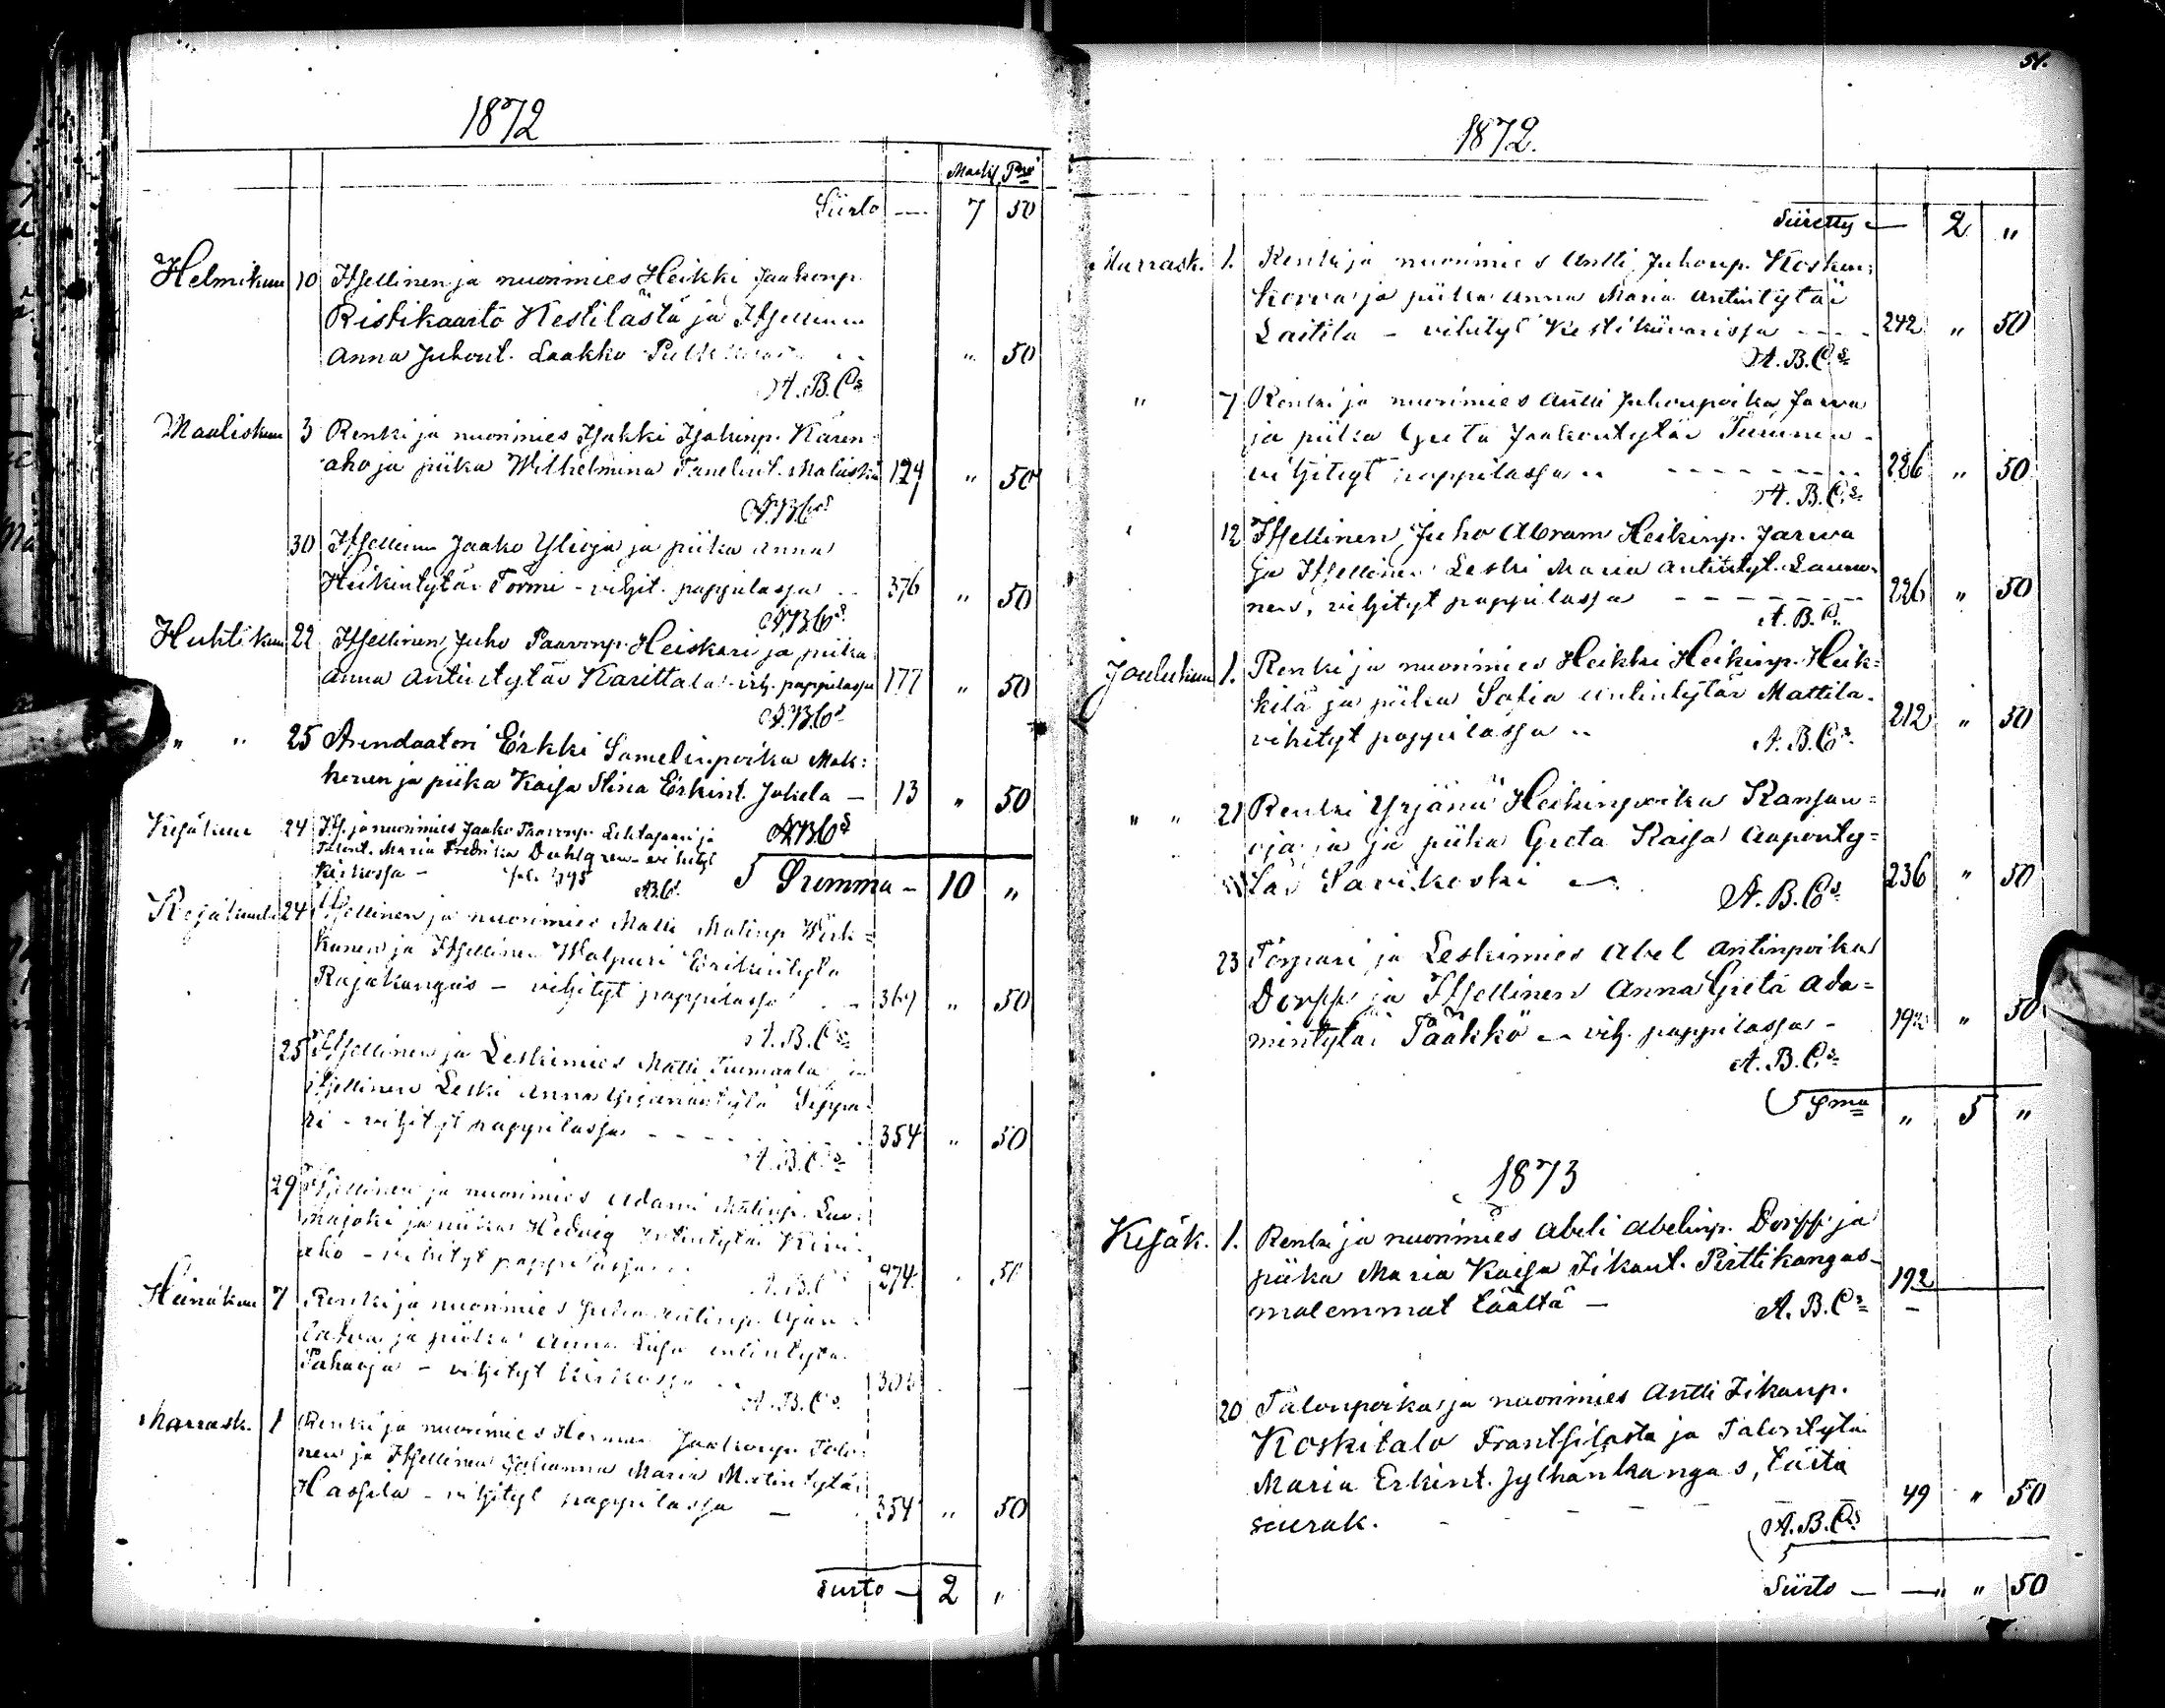 1872
Markk Pnä
Siirto — 7 50
Helmikuu 10 Itsellinen ja nuorimies Heikki Jaakonp.
Ristikaarto Kestilästä ja Itsellinen
Anna Juhont. Laakko " 50
A.B.Cs
Maaliskuu 3 Renki ja nuorimies Isakki Isakinp. Kären=
aho ja piika Wilhelmina Tanelint. 124 " 50
A.B.Cs
30 Itsellinen Jaako Ylioja ja piika Anna
Heikintytär Törmi - vihjit. pappilassa 376 " 50
A.B.Cs
Huhtikuu 22 Itsellinen Juho Paavonp. Heiskari ja piika
Anna Antintytär Karittala - vih. pappilassa 177 " 50
A.B.Cs
" " 25 Arendaatori Erkki Samelinpoika Mak=
konen ja piika Kaisa Stina Erkint. Jokela — 13 " 50
Kesäkuu 24 Its. ja nuorimies Jaako Paavonp. Lehtosaari ja A.B.Cs
Talont. Maria Fredrika Dahlgren - vihityt
Kirkossa — A.B.C. Summa — 10 "
Kesäkuu 24 Itsellinen ja nuorimies Matti Matinp.
kunen ja Itsellinen Walpuri
Rajakangas — vihityt pappilassa 369 " 50
A.B.Cs
25 Itsellinen ja Leskimies Matti Tuomaala ja
Itsellinen Leski Anna Yrjänäntytä Seppä=
ri - vihityt pappilassa - - - - 354 " 50
A.B.Cs
29 Itsellinen ja nuorimies Adami Mattinp. Luo=
majoki ja piika Hedvig Antintytär Kivi=
aho - vihityt pappilassa 274 " 50
A.B.C
Heinäkuu 7 Renki ja nuorimies Juho
ja piika Anna Liisa
Pahaoja - vihityt kirkossa —
A.B.Cs
Marrask. 1 Renki ja nuorimies Herman Jaakonp. Tolo=
nen ja Itsellinen Johanna Maria Matintytär
Hassila - vihityt pappilassa — 354 " 50
Siirto — 2 "
51.
1872.
Siiretty — 2 "
Marrask. 1. Renki ja nuorimies Antti Juhonp. Kosken=
korva ja piika Anna Maria Antintytär
Laitila - vihityt Kestikiivarissa - - - 242 " 50
A.B.Cs
" 7 Renki ja nuorimies Antti Juhonpoika Jarva
ja piika Greta Jaakontytär Tuminen -
vihjityt pappilassa - - - - - - - 226 " 50
A.B.Cs
12 Itsellinen Juho Abram Heikinp. Jarwa
ja Itsellinen Leski Maria Antintyt. Launo=
nen, vihjityt pappilassa - - - - - - - 226 " 50
A.B.C.
Joulukuu 1. Renki ja nuorimies Heikki Heikinp. Heik=
kilä ja piika Sofia Antintytär Mattila.
vihityt pappilassa 212 " 50
A.B.Cs
" " 21 Renki Yrjänä Heikinpoika Kansan=
oja ja piika Greta Kaisa Aaponty=
tär Savikoski — 236 " 50
A.B.Cs
23 Torppari ja Leskimies Abel Antinpoika
Dorff ja Itsellinen Anna Greta Ada=
mintytär Pääkkö — vih. pappilassa - 192 " 50
A.B.Cs
Sma " 5 "
1873
Kesäk. 1. Renki ja nuorimies Abeli Abelinp. Dorff ja
piika Maria Kaisa Fikant. Pirttikangas -
molemmat täältä — 192 —
A.B.Cs
20 Talonpoika ja nuorimies Antti Fikanp.
Koskitalo Frantsilasta ja Talontytär
Maria Erkint. Jylhänkangas, tästä
seurak. - - - - 49 " 50
A.B.Cs
Siirto — — " 50